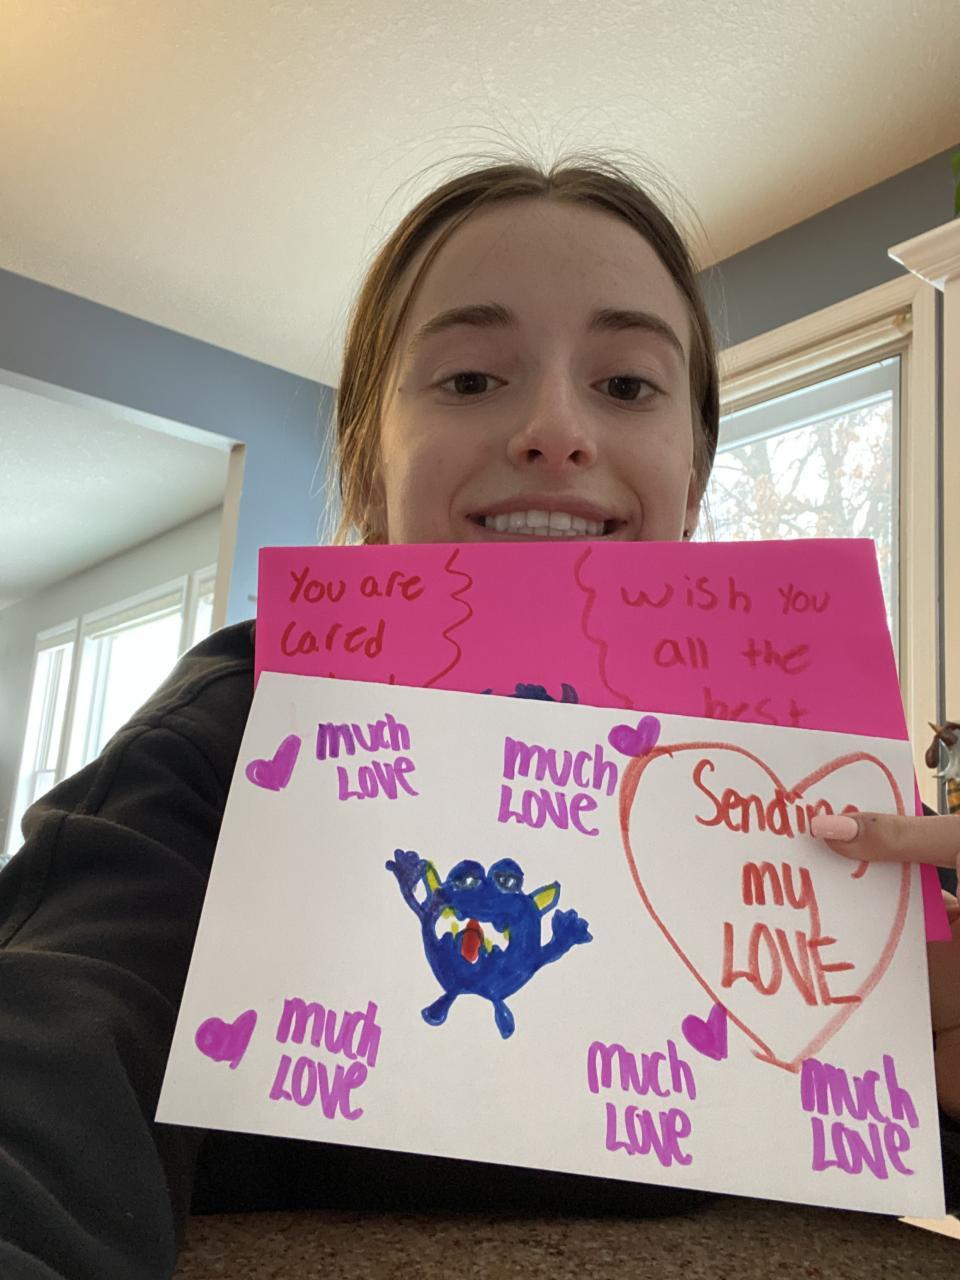 You are
cared
wish you
all the
best
much
LOVE
much
LOVE
Sending
my
LOVE
much
LOVE
much
LOVE
much
LOVE